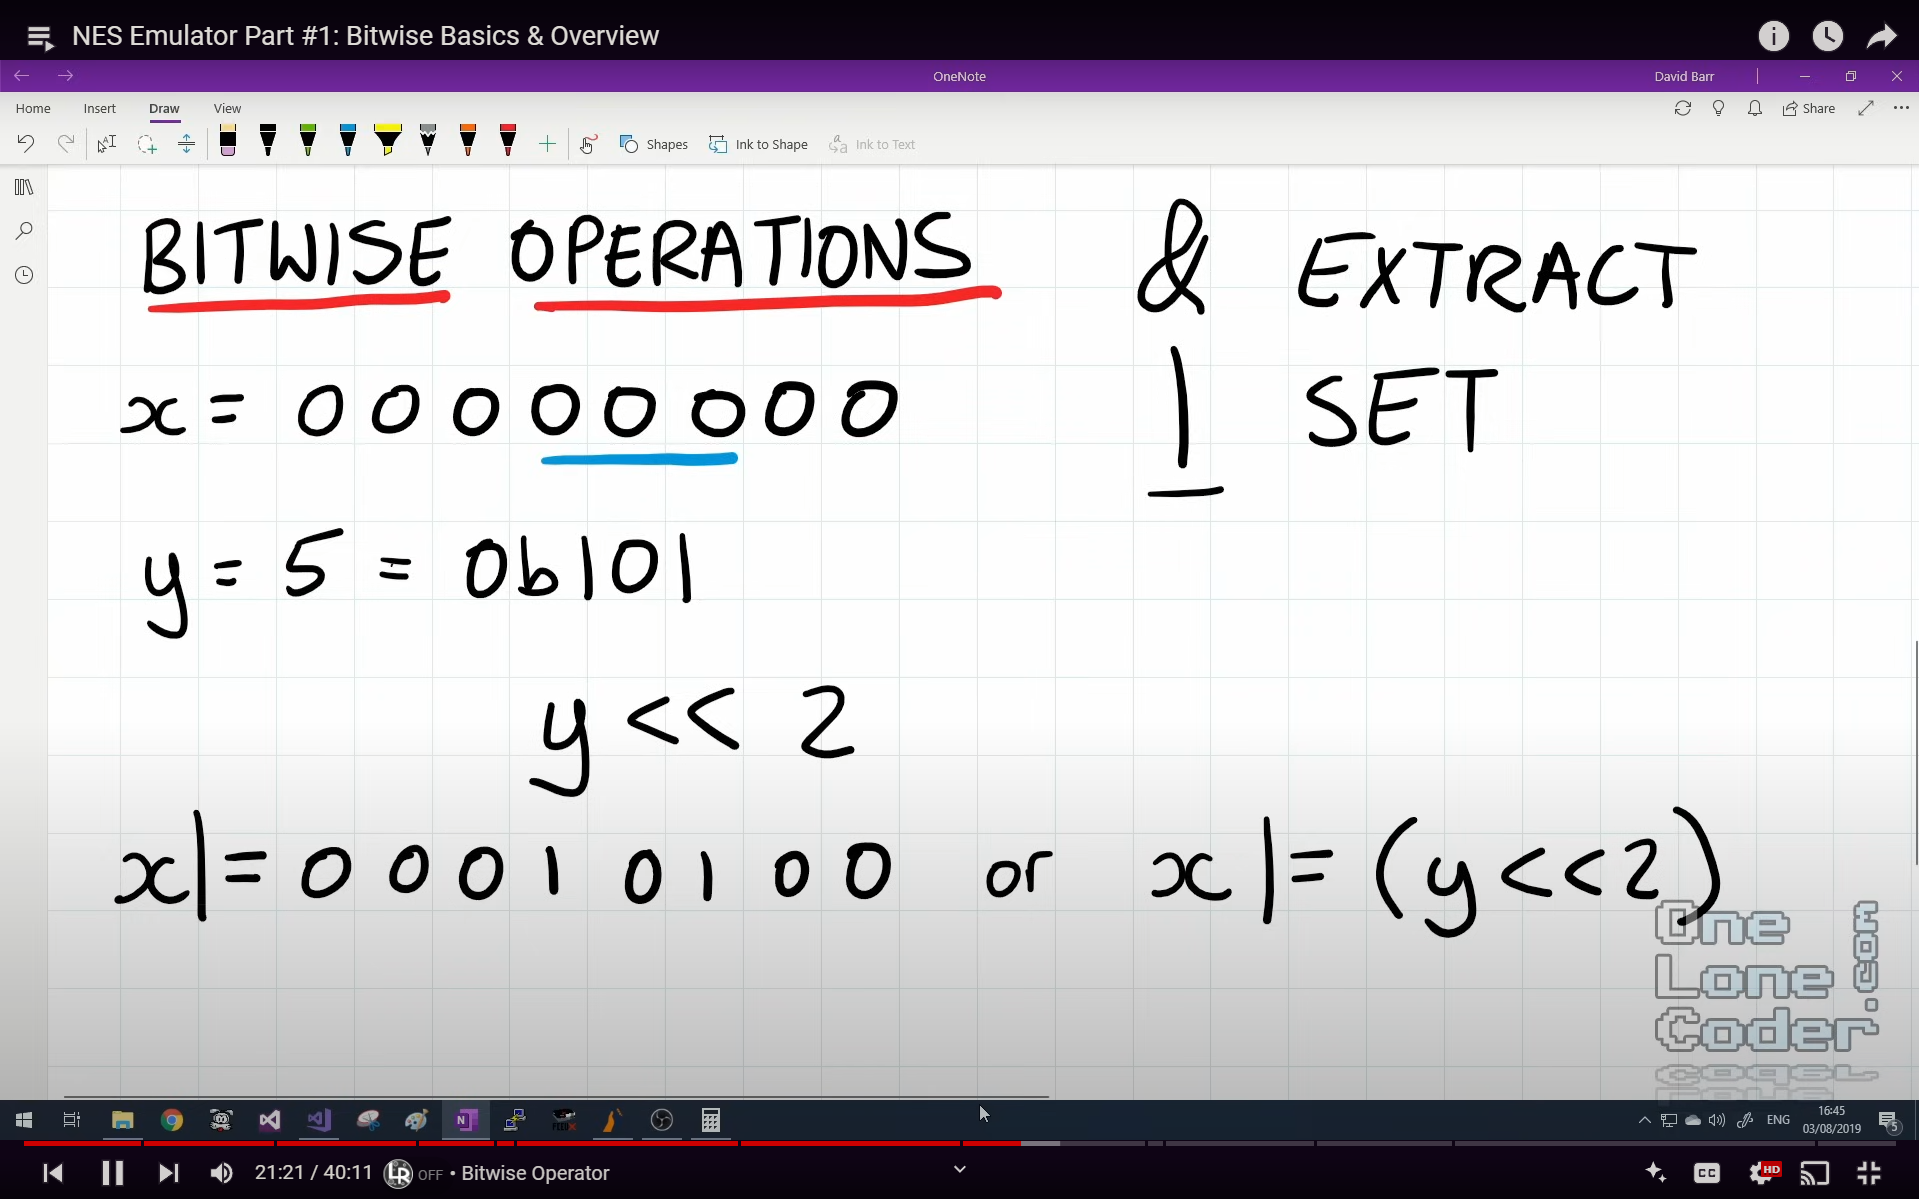 NES Emulator Part #1: Bitwise Basics & Overview
OneNote
David Barr
Home Insert Draw View
Share
Shapes Ink to Shape Ink to Text
BITWISE OPERATIONS
& EXTRACT
| SET
x = 0 0 0 0 0 0 0 0
y = 5 = 0b101
y << 2
x|= 0 0 0 1 0 1 0 0 or x |= (y<<2)
One
Lone
Coder.
com
ENG
16:45
03/08/2019
5
21:21 / 40:11 LR OFF • Bitwise Operator
CC
HD